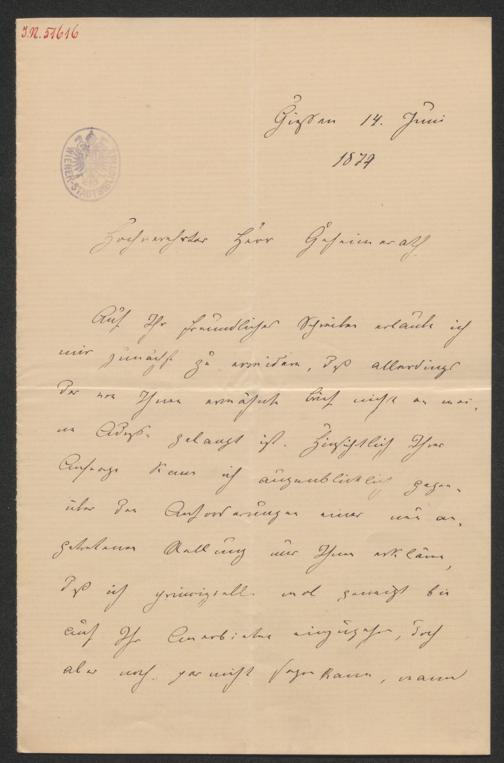 I.N. 51616
Gießen 14. Juni
1879
WIENER-STADTBIBLIOTHEK
Hochverehrter Herr Geheimerath
Auf Ihr freundliches Schreiben erlaube ich
mir zunächst zu erwidern, daß allerdings
der von Ihnen erwähnte Brief nicht an mei-
ne Adresse gelangt ist. Hinsichtlich Ihrer
Anfrage kann ich augenblicklich gegen-
über den Anforderungen einer neu an-
getretenen Stellung nur Ihnen erklären,
daß ich principiell wol geneigt bin
auf Ihr Anerbieten einzugehen, doch
aber noch gar nicht sagen kann, wann